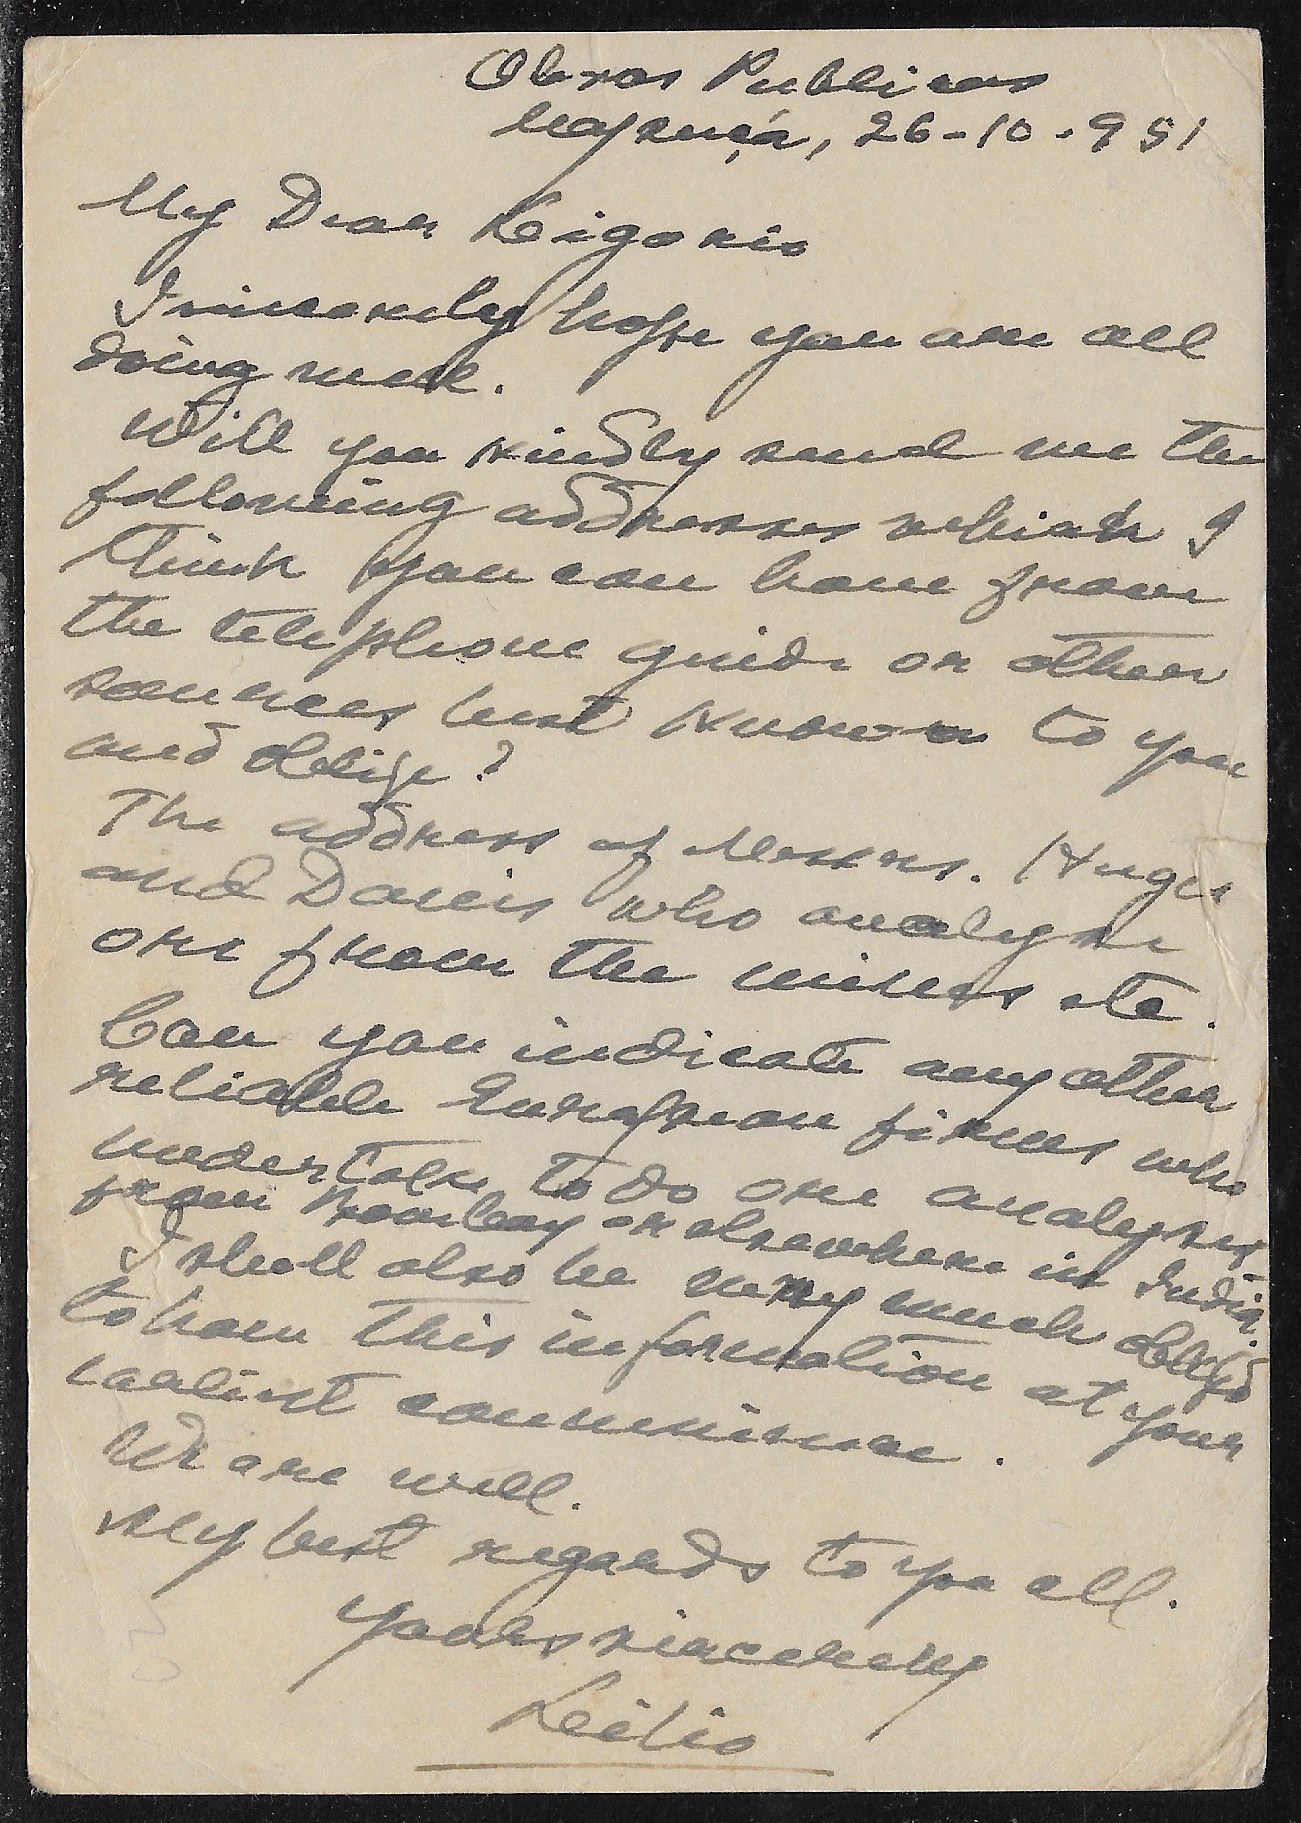 Obras Publicas
Mapuçá, 26-10-951
My Dear Ligorio
I sincerely hope you are all
doing well.
Will you kindly send me the
following addresses which I
think you can have from
the telephone guide or other
sources best known to you
and oblige?
The address of Messrs. Hughes
and Davis who analyse
ore from the mines etc.
Can you indicate any other
reliable European firms who
undertake to do ore analyses
from Bombay or elsewhere in India.
I shall also be very much obliged
to have this information at your
earliest convenience.
We are well.
My best regards to you all.
Yours sincerely